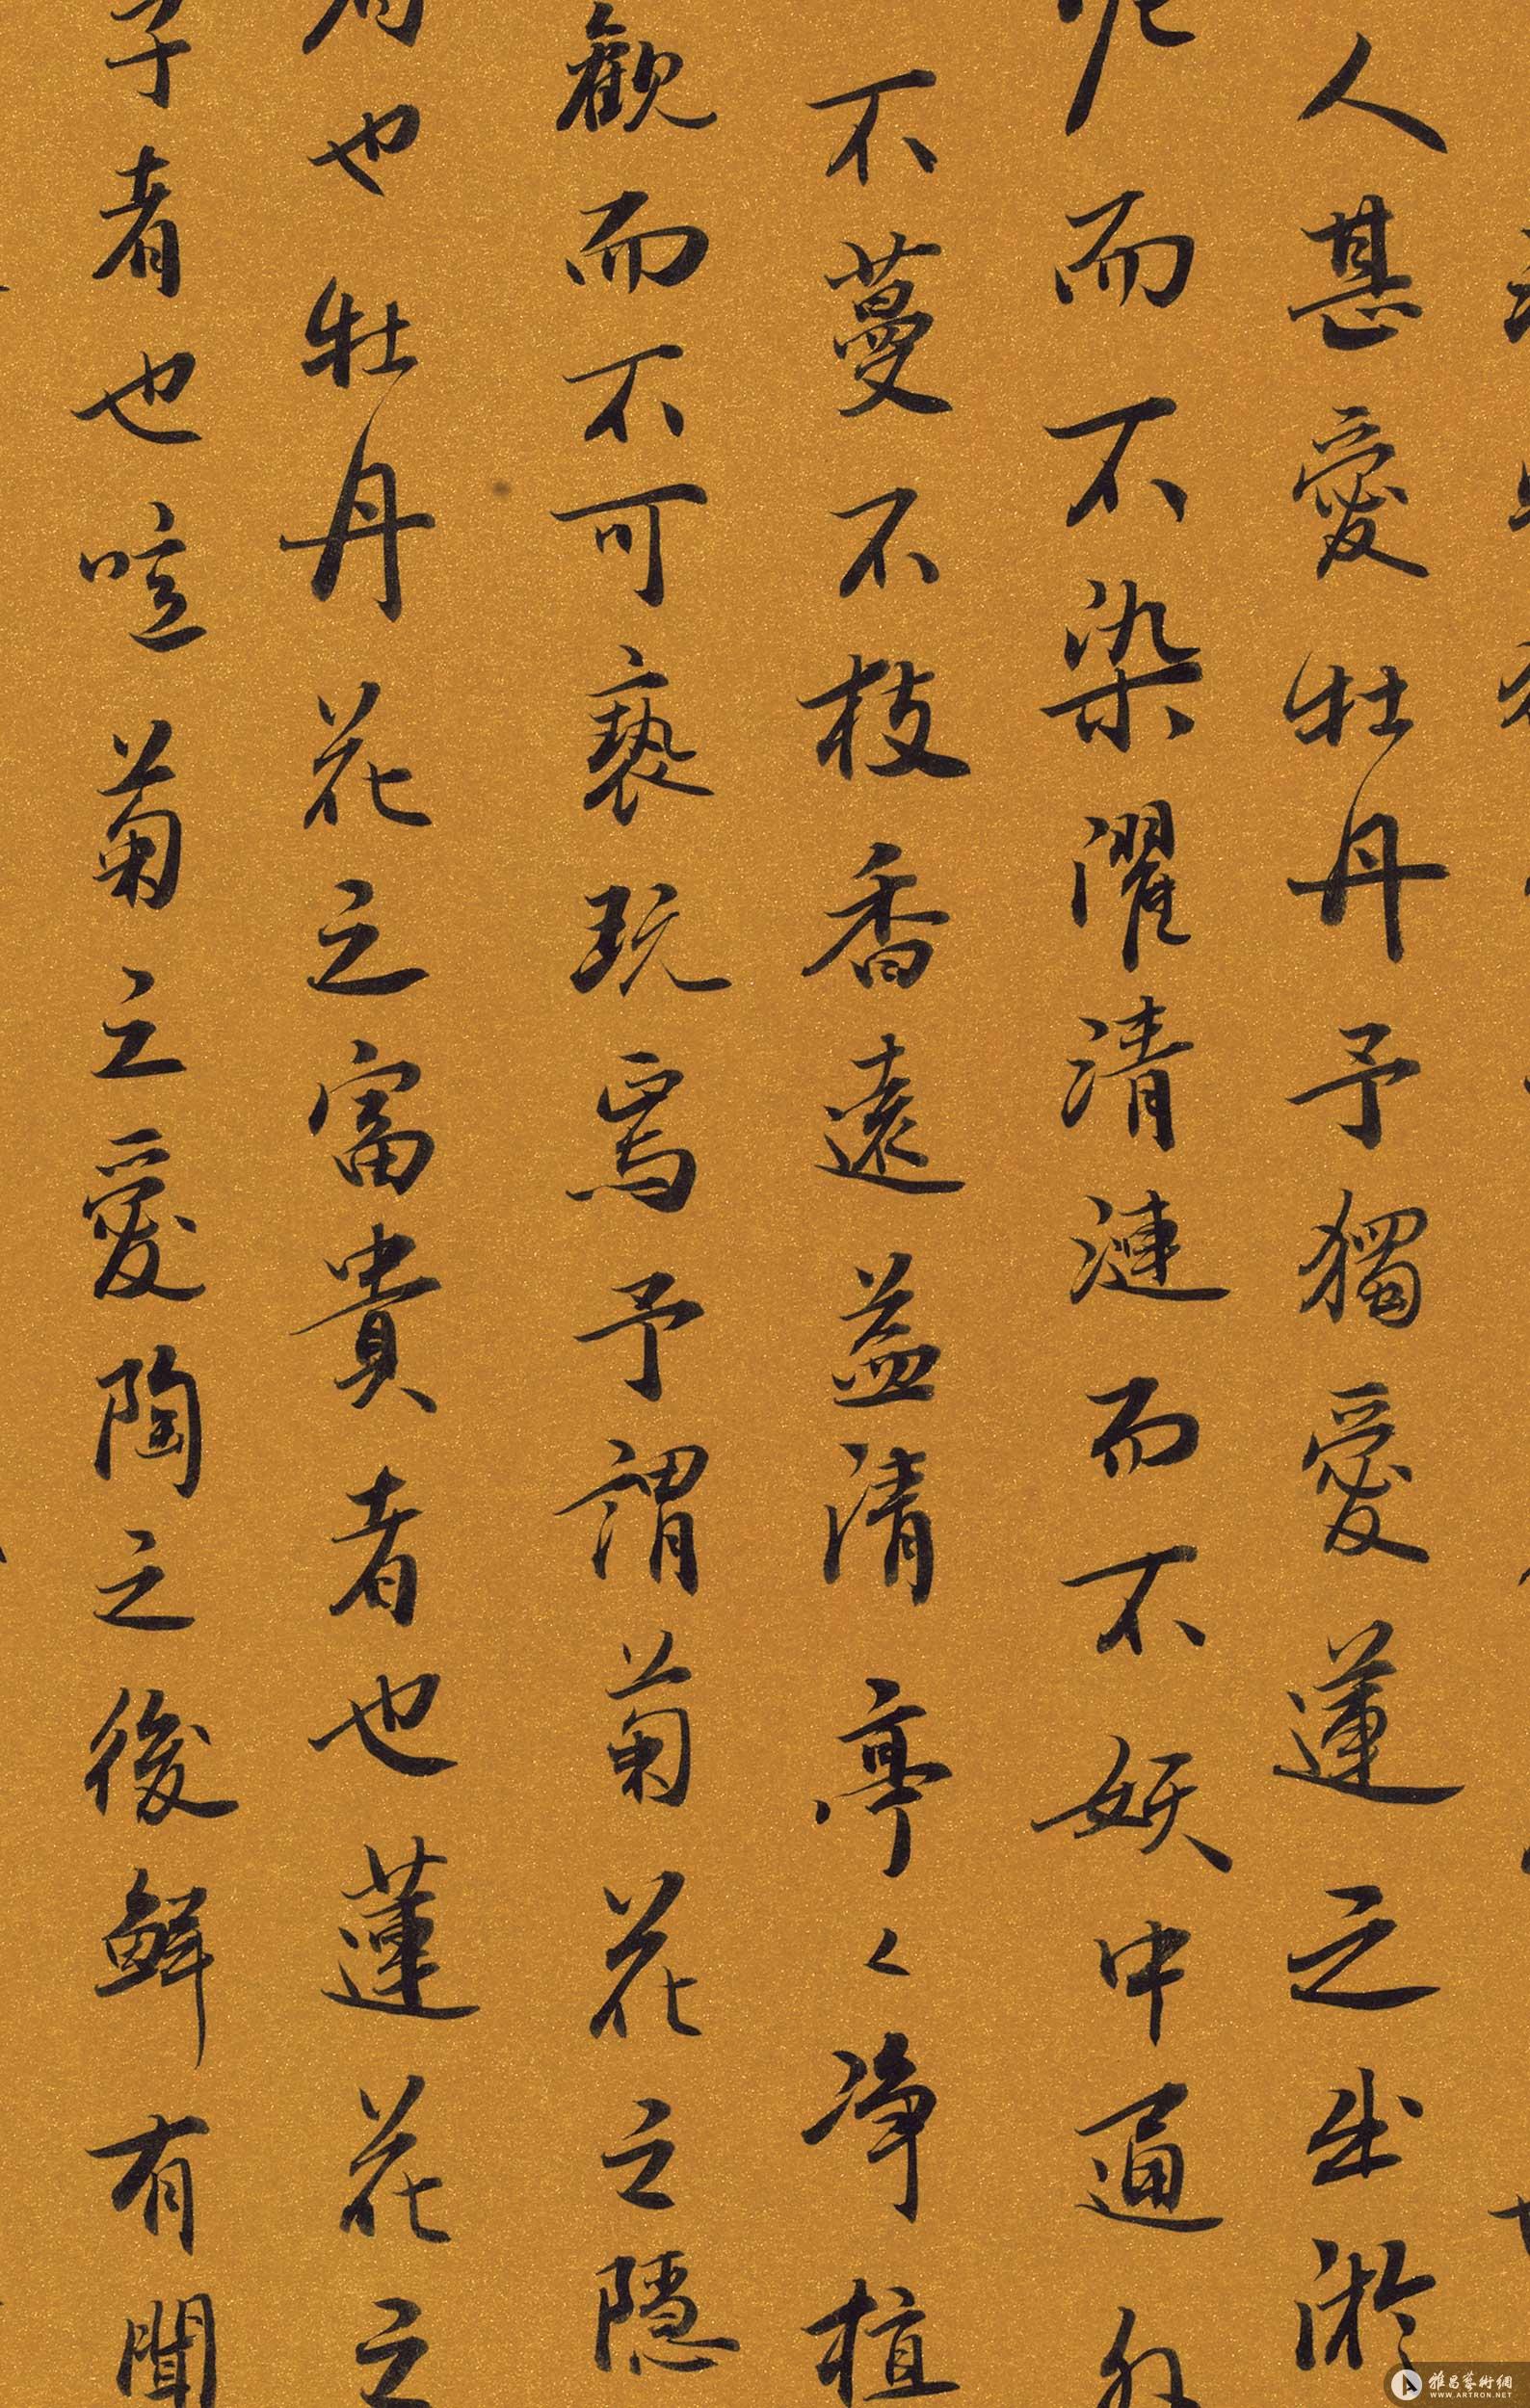 人甚愛牡丹予獨愛蓮之出淤
泥而不染濯清漣而不妖中通外
不蔓不枝香遠益清亭〻淨植
觀而不可褻玩焉予謂菊花之隱
者也牡丹花之富貴者也蓮花之
子者也噫菊之愛陶之後鮮有聞
雅昌藝術網
WWW.ARTRON.NET